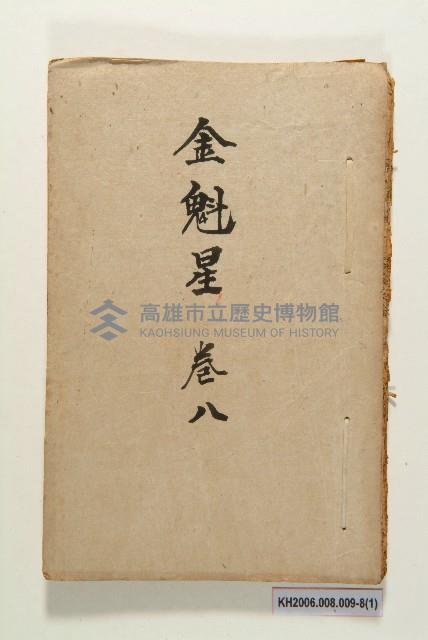 金魁星 卷八
高雄市立歷史博物館
KAOHSIUNG MUSEUM OF HISTORY
KH2006.008.009-8(1)